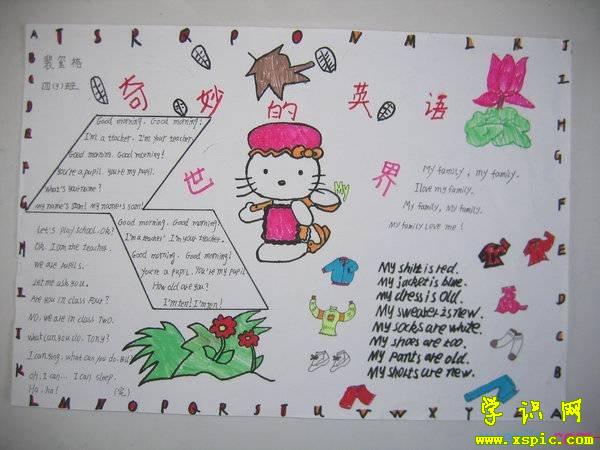 A T S R Q P O N M L K J
裴玺格
四(3)班
奇妙的英语
世界
My
Good morning. Good morning!
I'm a teacher. I'm your teacher.
Good mornin. Good morning!
You're a pupil. you're my pupil.
What's your name?
My name's Sam! my name's Sam!
Good morning. Good morning.
I'm a teacher. I'm your teacher.
Good morning. Good morning!
You're a pupil. You're my pupil
How old are you?
I'm ten! I'm ten!
Let's play school. Ok?
OK. I am the teacher.
We are pupils.
Let me ask you.
Are you in class Four?
NO. we are in class Two.
what can you do. Tony?
I can sing. what can you do.
oh. I can... I can sleep.
Ha. ha! (完)
My family, my family.
I love my family.
My family, My family.
My family love me!
My shirt is red.
My jacket is blue.
My dress is old.
My sweater is new.
My socks are white.
My shoes are too.
My pants are old.
My shorts are new.
L M N O P Q R S T U V W X Y Z A
学识网
www.xspic.com